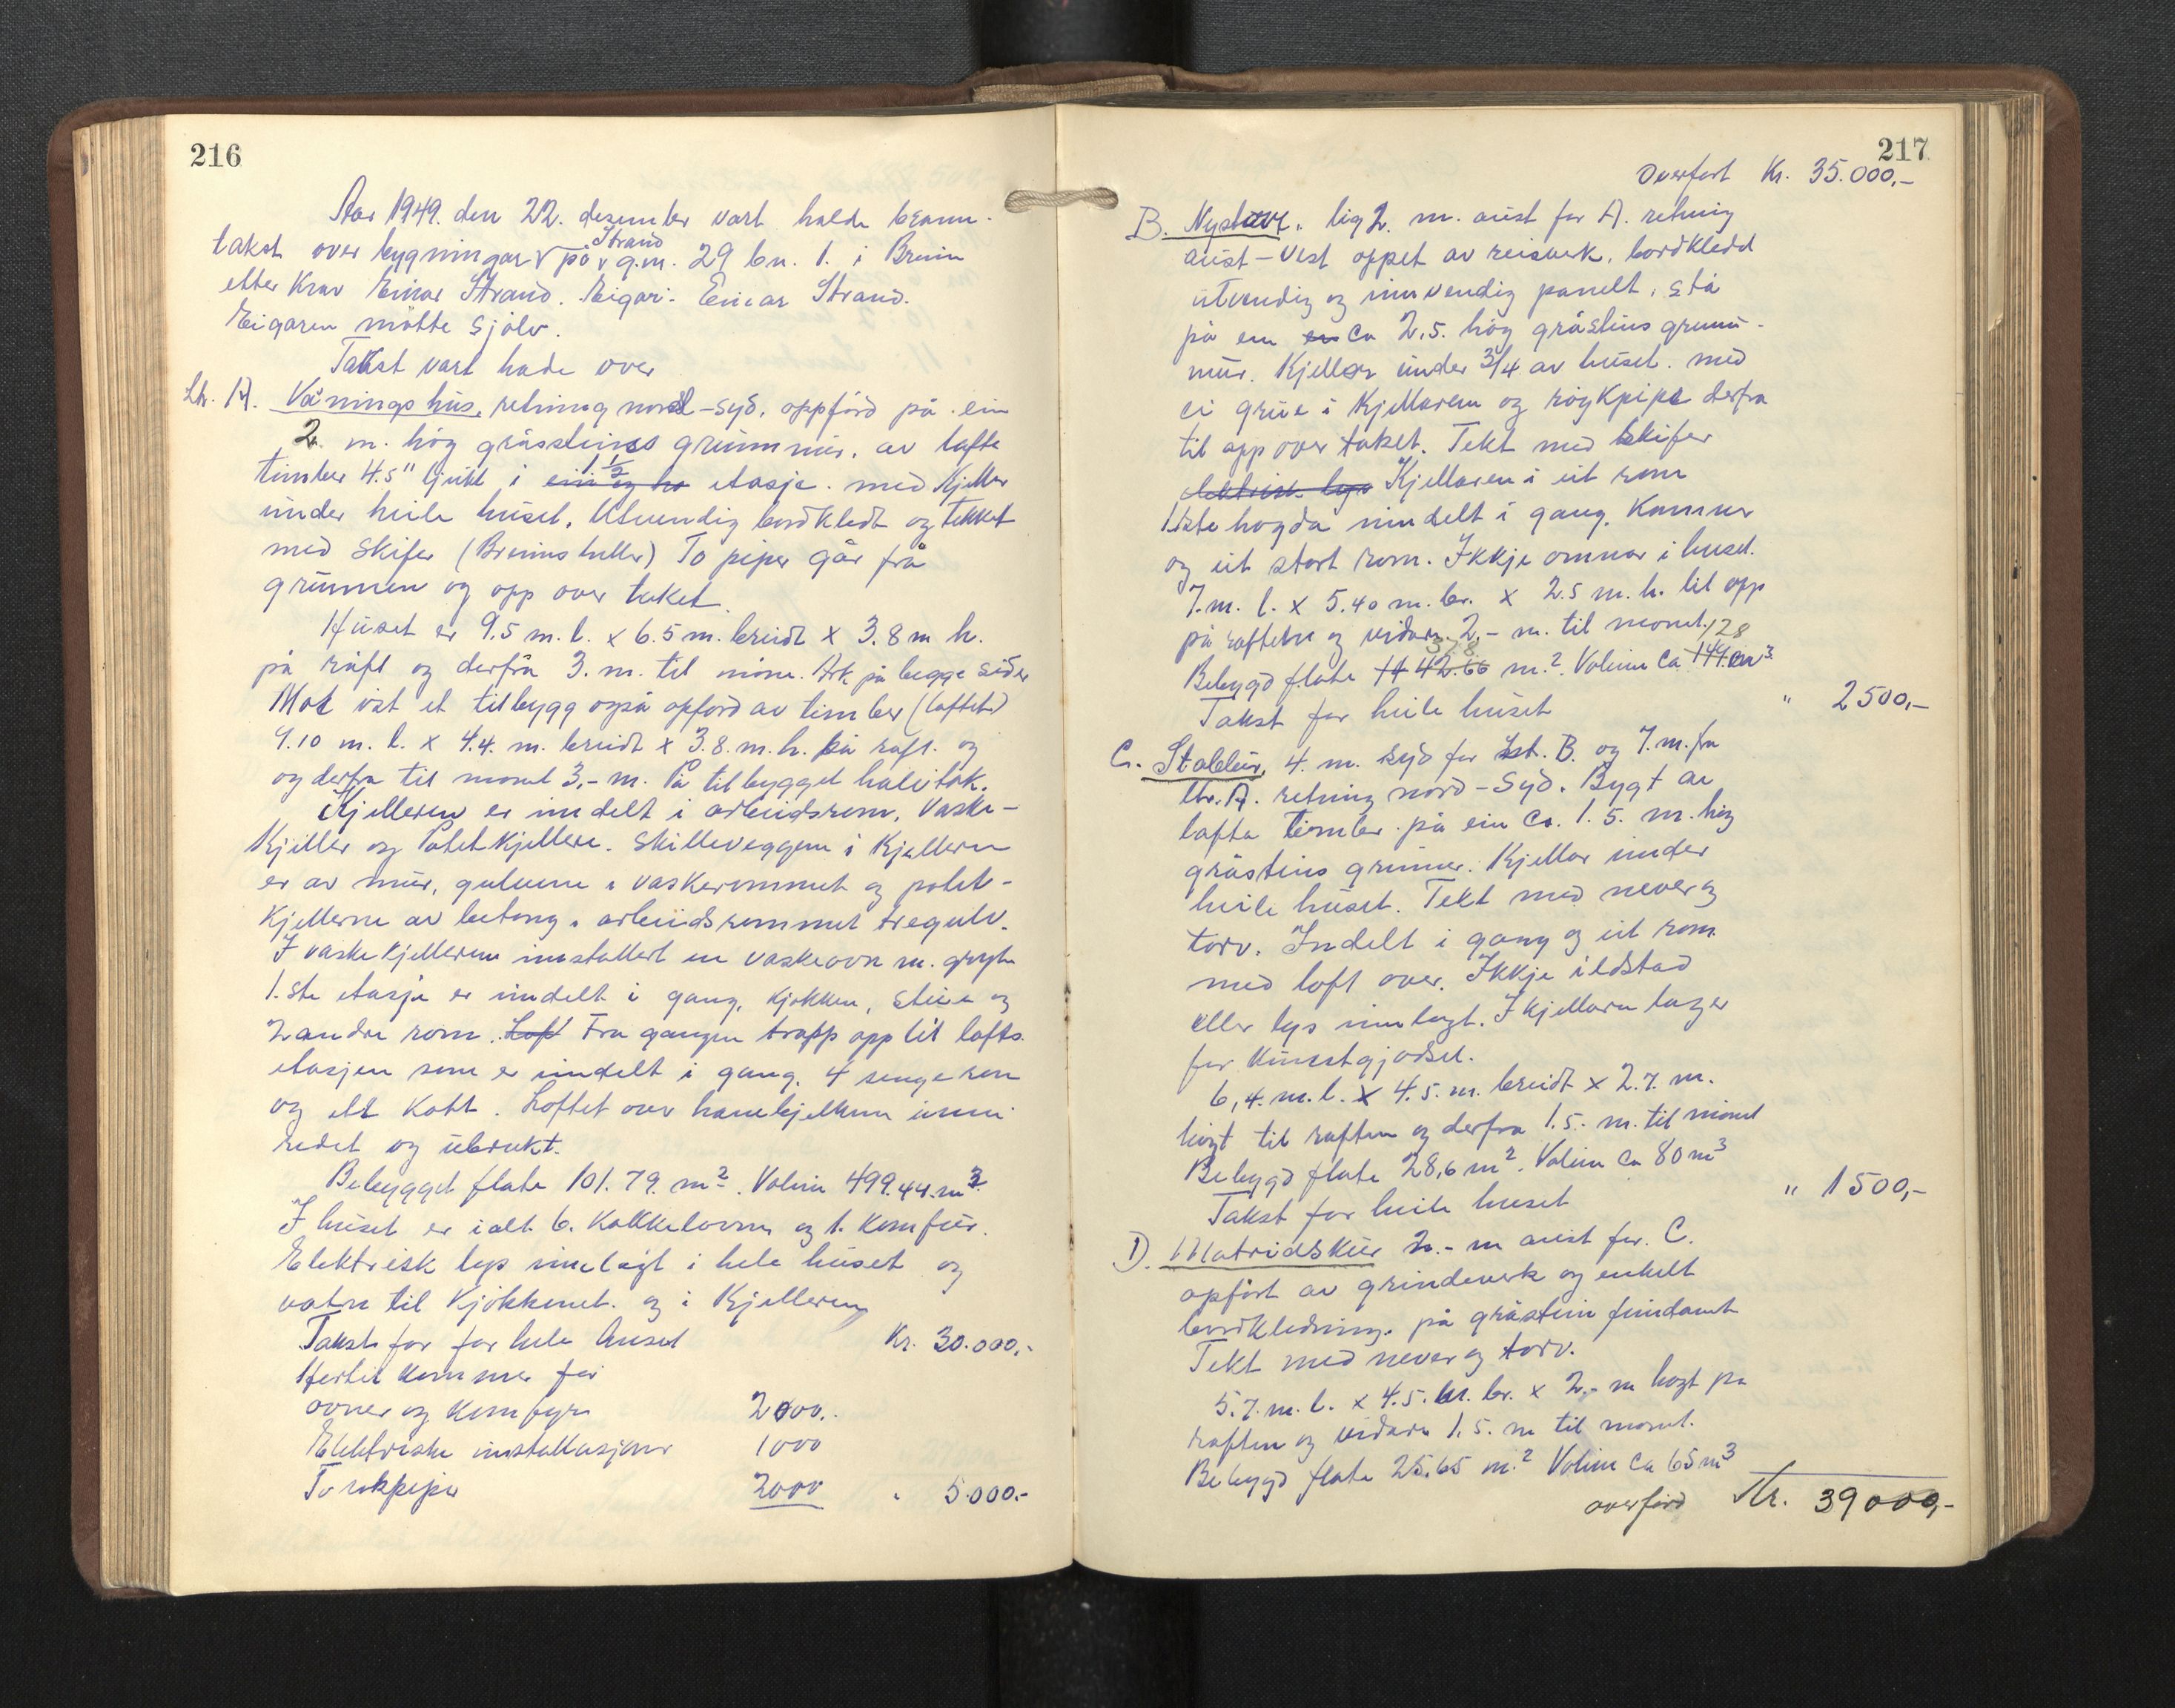 216
Aar 1949. den 22. desember vart halde brann-
takst over bygningar på Strand g.nr. 29 bn. 1. i Breim
etter Krav Einar Strand. Eigar: Einar Strand.
Eigaren møtte sjølv.
Takst vart hade over
Ltr. A. Våningshus, retning nord-syd, oppførd på ein
2 m. høg gråsteins grunnmur, av lafta
timber 4.5" tjukt i 1 1/2 etasje. med Kjeller
under heile huset. Utvendig bordkledt og tekket
med skifer (Breimsheller) To piper går frå
grunnen og opp over taket.
Huset er 9.5 m. l. x 6.5 m. breidt x 3.8 m h.
på raft og derfrå 3. m. til møne. Ark på begge sider
Mot vst et tilbygg også opførd av timber (laftet)
9.10 m. l. x 4.4. m. breidt x 3.8. m. h. på raft. og
og derfra til mønet 3,- m. På tilbygget halvtak.
Kjelleren er inndelt i arbeidsrom, Vaske-
Kjeller og Potetkjellere. Skilleveggen i Kjelleren
er av mur, gulvene i vaskerommet og potet-
Kjellerne av betong, arbeidsrommet tregulv.
I vaskekjelleren installert en vaskeovn m. gryte
1.ste etasje er inndelt i gang, kjøkken, stue og
2 andre rom. Loft Fra gangen trapp opp til lofts
etasjen som er inndelt i gang, 4 senge rom
og ett kott. Loftet over hanebjelken uinn-
redet og ubrukt.
Bebygget flate 101.79. m². Volum 499.44. m3
I huset er ialt 6. Kakkelovner og 1. Komfur.
Elektrisk lys innlagt i hele huset og
vatn til Kjøkkenet. og i Kjelleren
Takst for for hele huset Kr. 30.000.-
Hertil kommer for
ovner og komfyr 2000.
Elektriske installasjoner 1000
To rokpiper 2000 " 5.000.-
217
Overført Kr. 35.000,-
B. Nystove, lig 2. m. aust for A. retning
aust-vest oppet av reisverk, bordkledd
utvendig og innvendig panelt, stå
på ein en ca 2.5. høg gråsteins grunn-
mur. Kjeller under 3/4 av huset. med
ei grue i Kjellaren og røykpipe derfra
til opp over taket. Tekt med skifer
elektrisk lys Kjellaren i eit rom
1ste høgda inndelt i gang, Kammer
og eit stort rom. Ikkje omnar i huset.
7. m. l. x 5.40 m. br. x 2.5 m. h. til opp
på raftet og vidare 2,- m. til mønet. 128
37.8
Bebygd flate 42.66 m.² Volum ca 144 m3.
Takst for heile huset " 2500,-
C. Stabbur, 4. m. syd for Ltr. B. og 7. m. fra
ltr. A. retning nord-Syd. Bygt av
lafta timber på ein ca. 1.5. m. høg
gråsteins grunnur. Kjellar under
heile huset. Tekt med never og
torv. Indelt i gang og eit rom
med loft over. Ikkje ildstad
eller lys innlagt. I kjellaren lager
for kunstgjødsel.
6,4. m. l. x 4.5. m. breidt x 2.7. m.
høgt til raften og derfra 1.5. m. til mønet
Bebygd flate 28,6 m². Volum ca 80 m3
Takst for heile huset " 1500,-
D. Matridskur 2.- m aust for C.
opført av grindverk og enkelt
bordkledning. på gråstein fundamt
Tekt med never og torv.
5.7. m. l. x 4.5. m. br. x 2,- m høgt på
raften og vidare 1.5. m til mønet.
Bebygd flate 25.65 m.² Volum ca 65 m3
overførd Kr. 39000,-